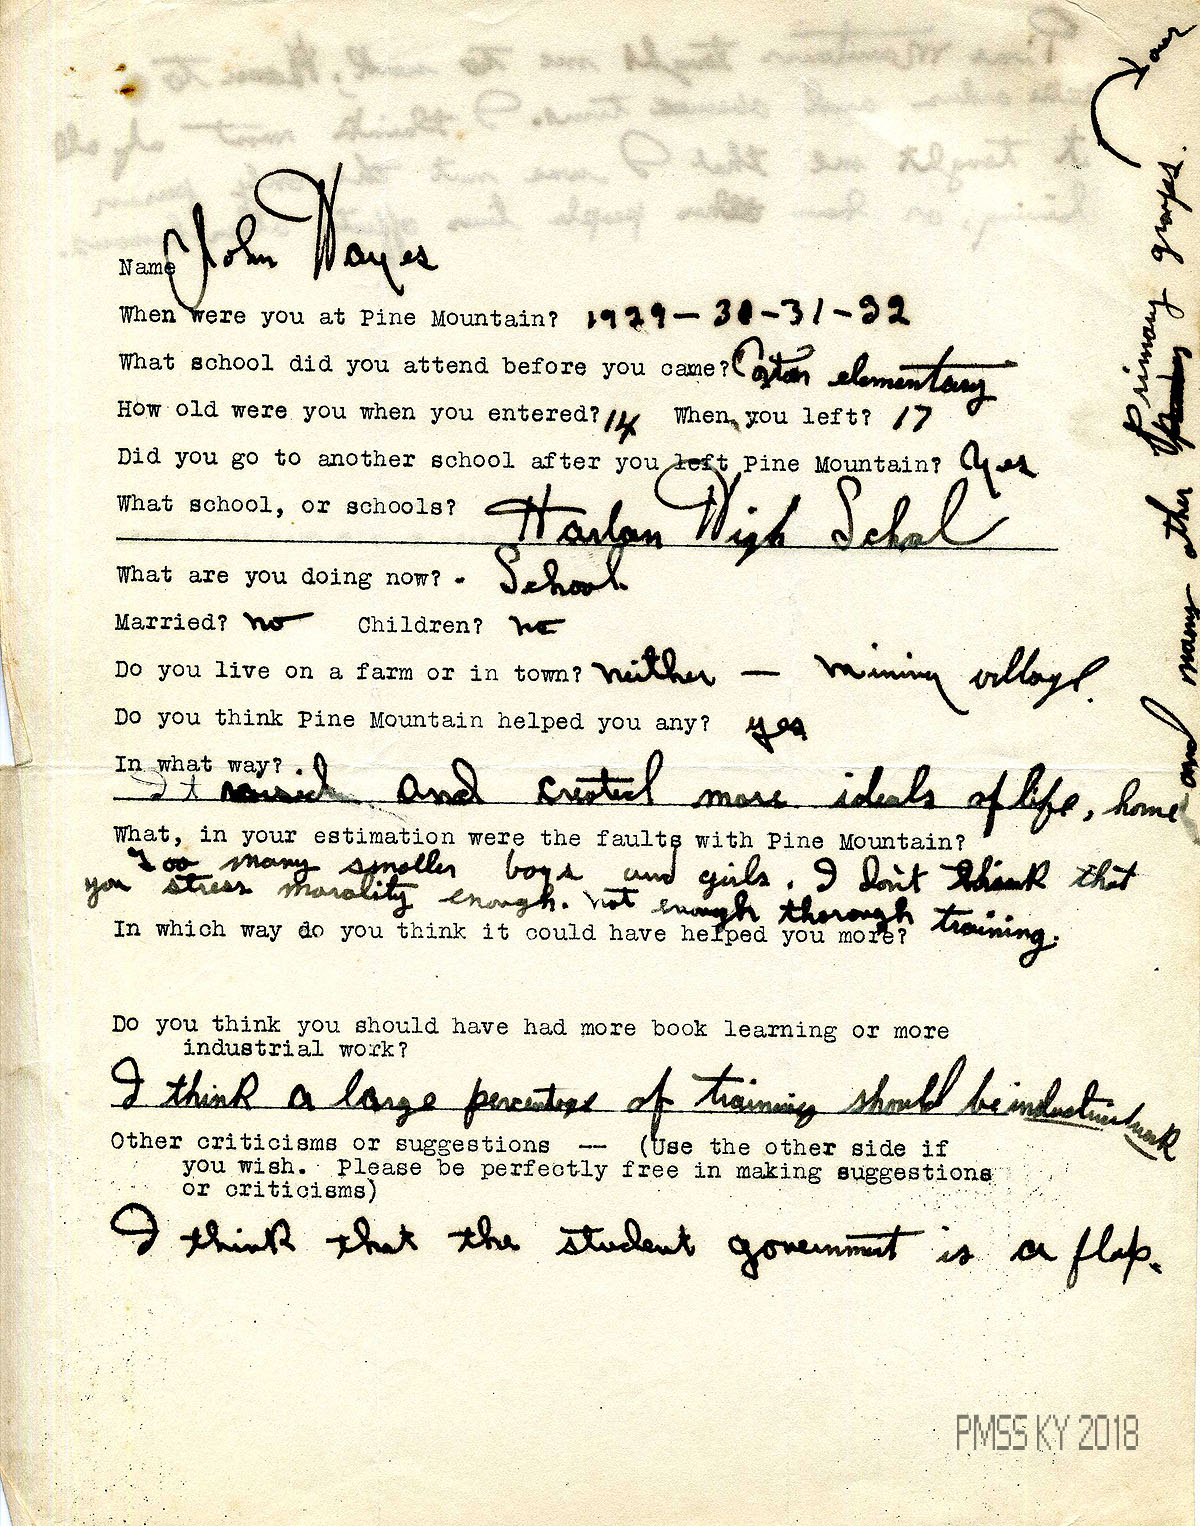 Name John Hayes
When were you at Pine Mountain? 1929-30-31-32
What school did you attend before you came? elementary
How old were you when you entered? 14 When you left? 17
Did you go to another school after you left Pine Mountain? Yes
What school, or schools? Harlan High Schol
What are you doing now? - School.
Married? no Children? no
Do you live on a farm or in town? neither — mining village.
Do you think Pine Mountain helped you any? yes
In what way?
It and created more ideals of life, home
and many other Primary groups.
over
What, in your estimation were the faults with Pine Mountain?
Too many smaller boys and girls. I don't think that
you stress morality enough. not enough thorough training.
In which way do you think it could have helped you more?
Do you think you should have had more book learning or more
industrial work?
I think a large percentage of training should be industrial work
Other criticisms or suggestions -- (Use the other side if
you wish. Please be perfectly free in making suggestions
or criticisms)
I think that the student government is a flop.
PMSS KY 2018